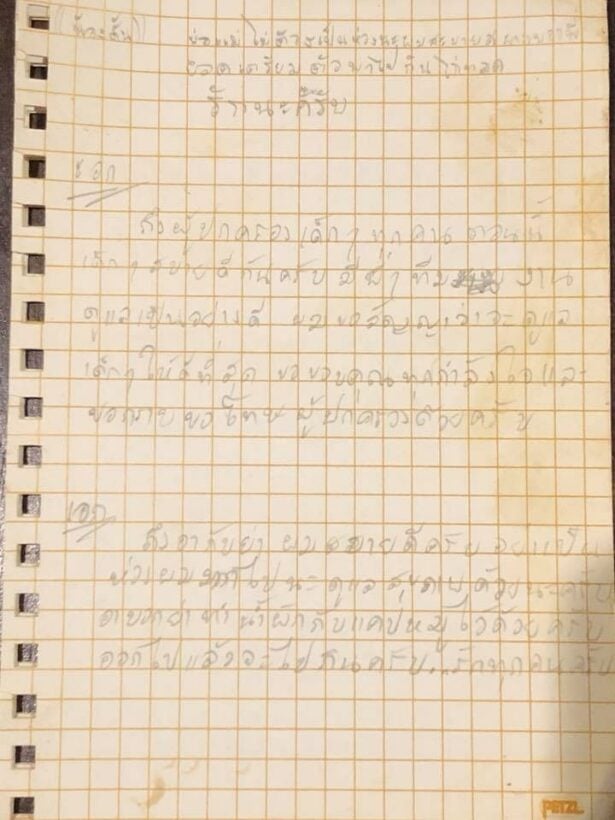 (น้องตั้น)
พ่อแม่ไม่ต้องเป็นห่วงนะผมสบายดี
ยอดเตรียมตัวพาไปกินไก่ทอด
ร้านนะครับ
โค้ช เอก
ถึงผู้ปกครองเด็กๆ ทุกคน ตอนนี้
เด็กๆ สบายดีกันครับ มีพี่ๆ ทีมงาน
ดูแลเป็นอย่างดี ผมขอสัญญาว่าจะดูแล
เด็กๆ ให้ดีที่สุด ขอขอบคุณทุกกำลังใจและ
ขอกราบขอโทษผู้ปกครองด้วยครับ
เอก
ถึงอากับย่า ผมสบายดีครับ อย่าเป็น
ห่วงผมมากไปนะ ดูแลสุขภาพด้วยนะครับ
ย่าทำน้ำผักกับแคปหมูไว้ด้วยครับ
ออกไปแล้วจะไปกินครับ..รักทุกคนครับ
PETZL